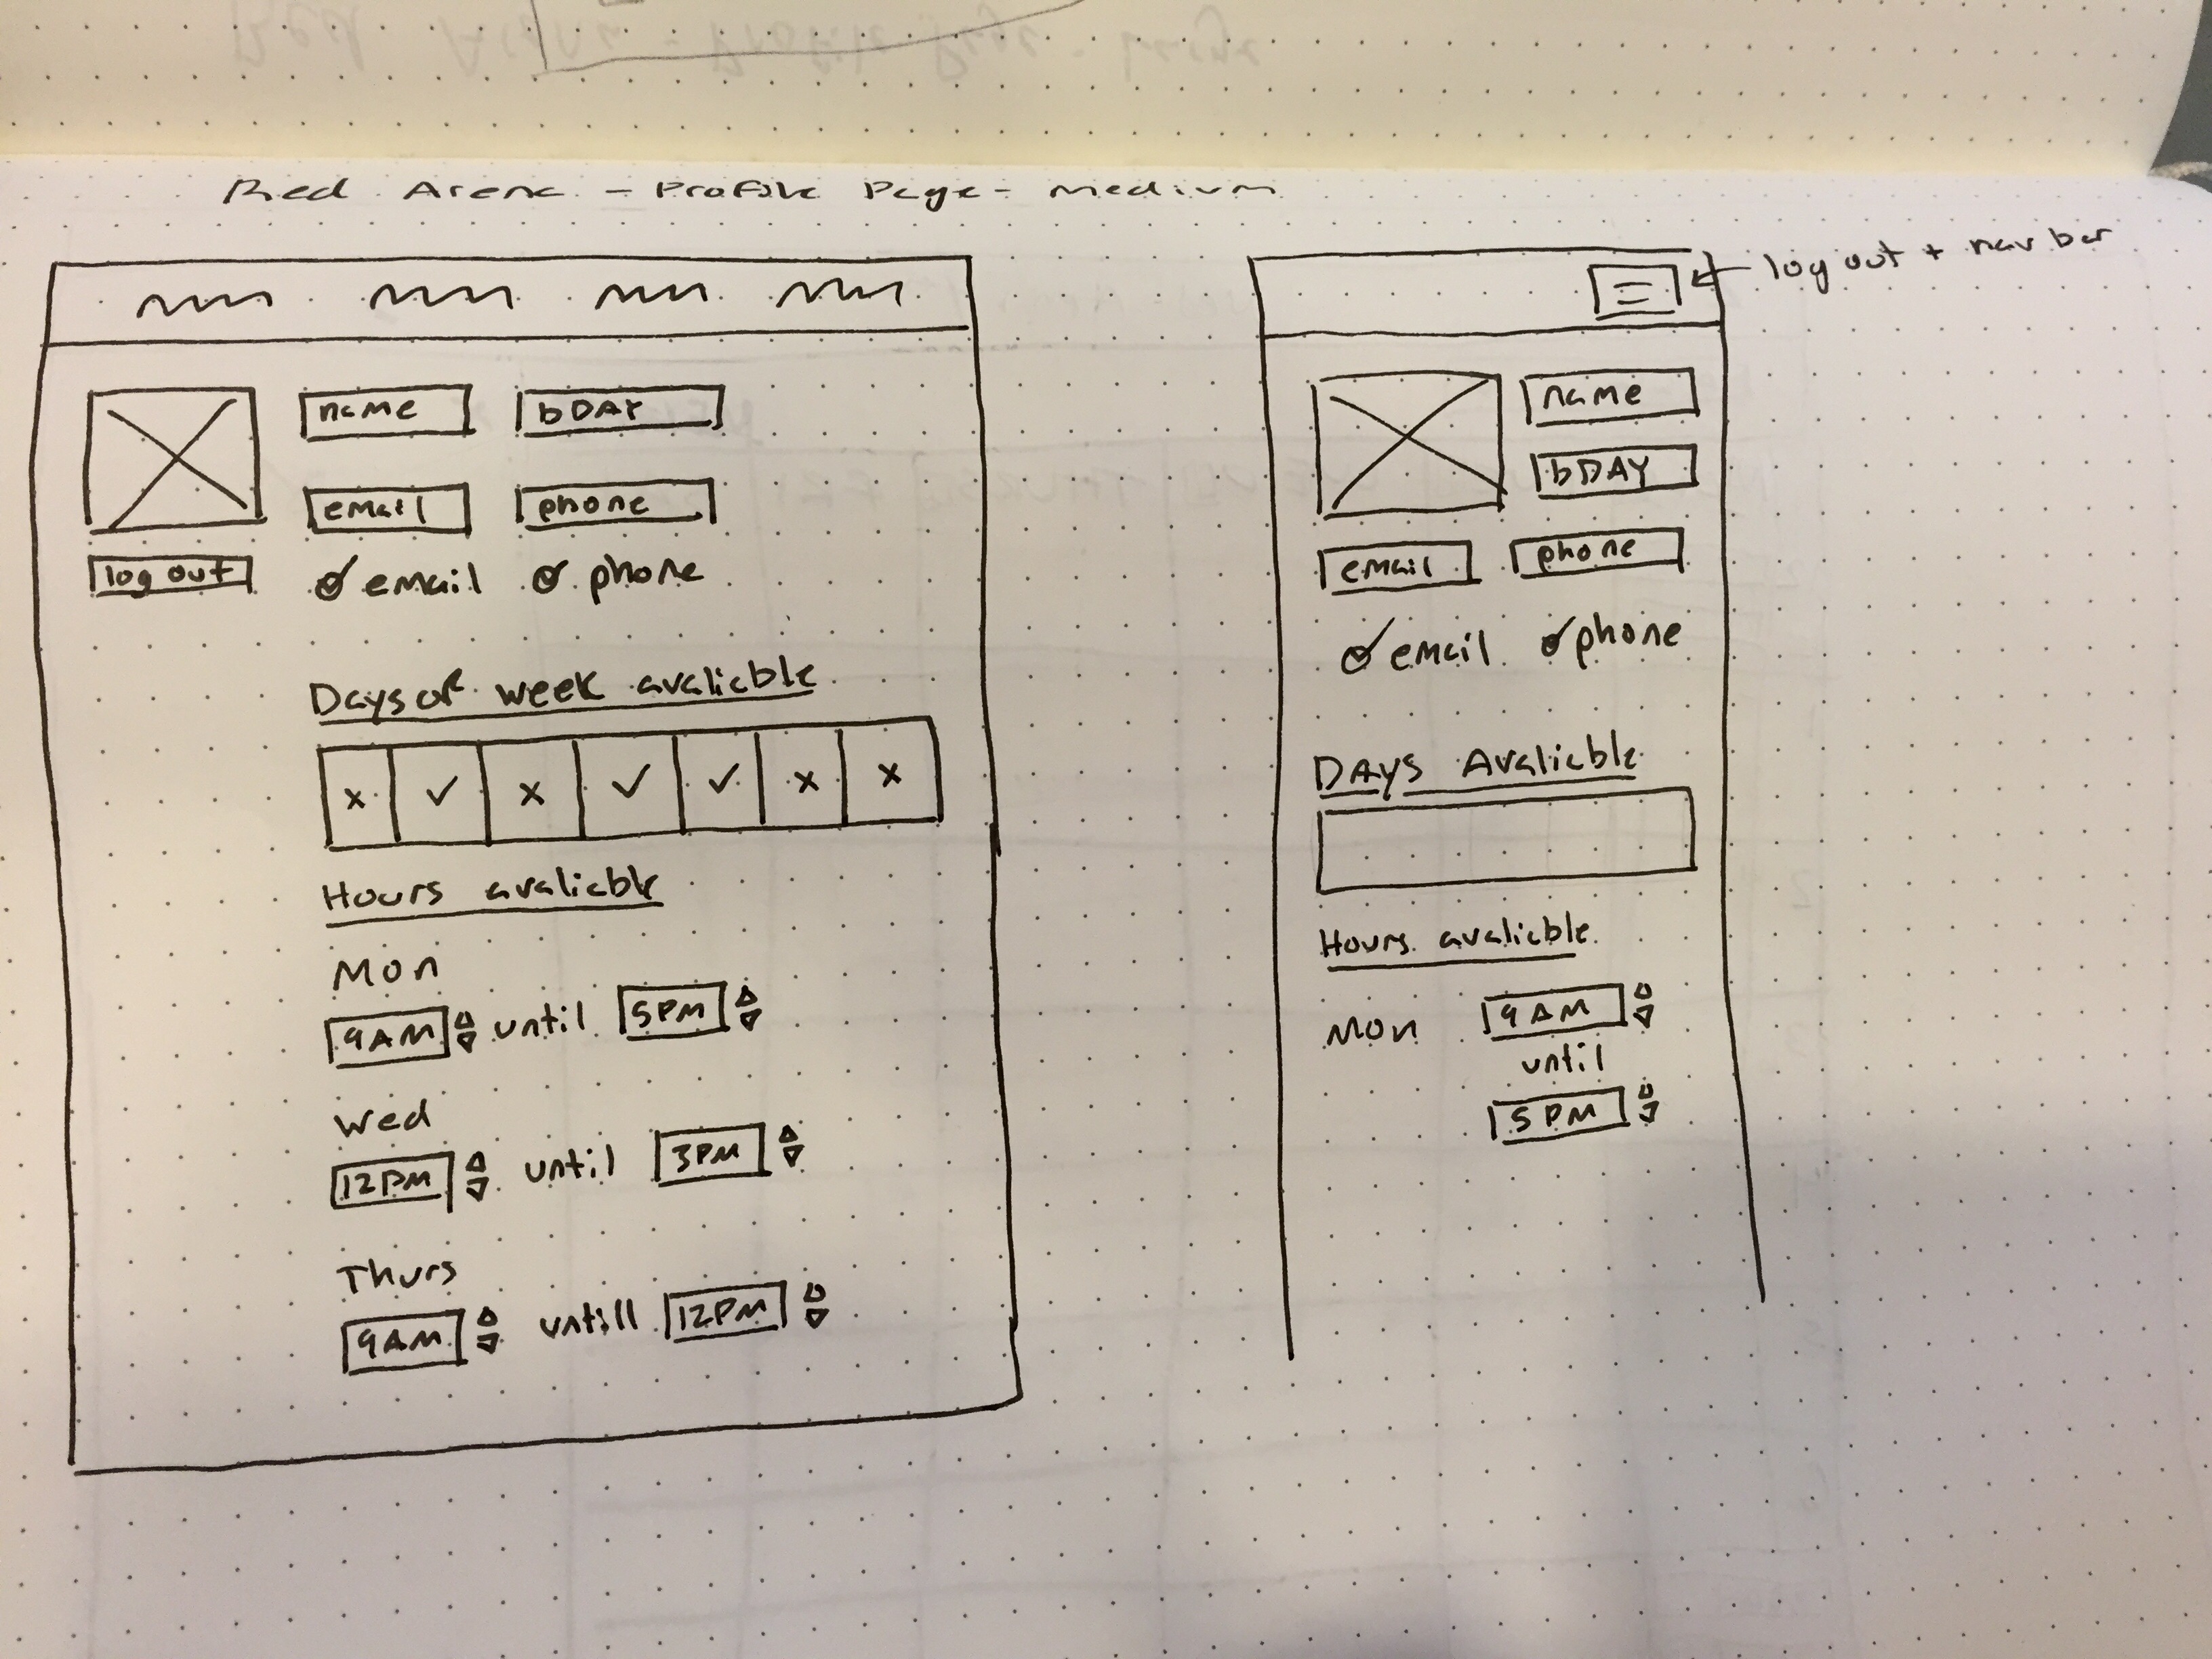 Red Arena - Profile Page - Medium
log out + nav bar
name bDAY
email phone
log out email phone
Days of week avaliable
x ✓ x ✓ ✓ x x
Hours avaliable
Mon
9AM until 5PM
Wed
12PM until 3PM
Thurs
9AM untill 12PM
name
bDAY
email phone
email phone
DAYS Avaliable
Hours avaliable
Mon 9AM
until
5PM